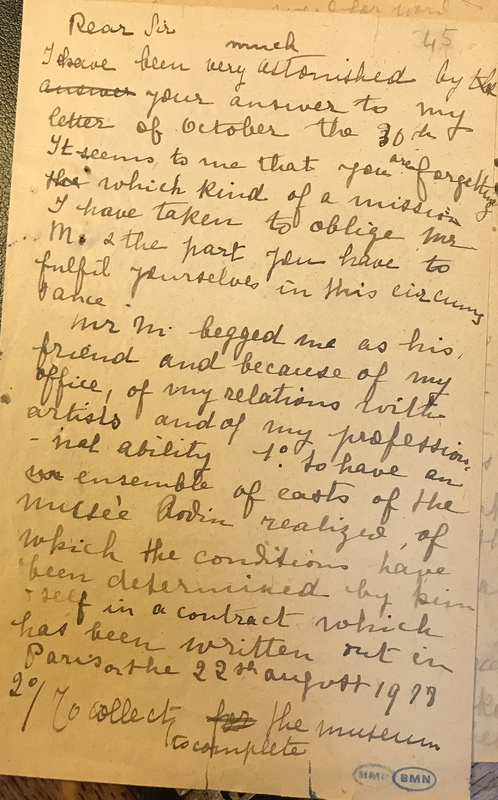 45
Dear Sir
I have been very much astonished by the
answer your answer to my
letter of October the 30th
It seems to me that you are forgetting
the which kind of a mission
I have taken to oblige Mr
M. & the part you have to
fulfil yourselves in this circums
tance.
Mr M. begged me as his
friend and because of my
office, of my relations with
artists and of my profession
-nal ability 1° to have an
ensemble of casts of the
musée Rodin realized, of
which the conditions have
been determined by him
self in a contract which
has been written out in
Paris on the 22th august 19
2°/ To collect for the museum
to complete
BMN